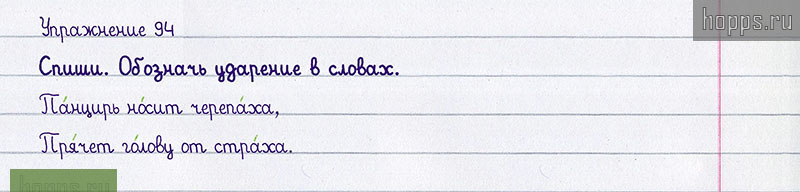 Упражнение 94
hopps.ru
Спиши. Обозначь ударение в словах.
Па́нцирь но́сит черепа́ха,
Пря́чет го́лову от стра́ха.
hopps.ru